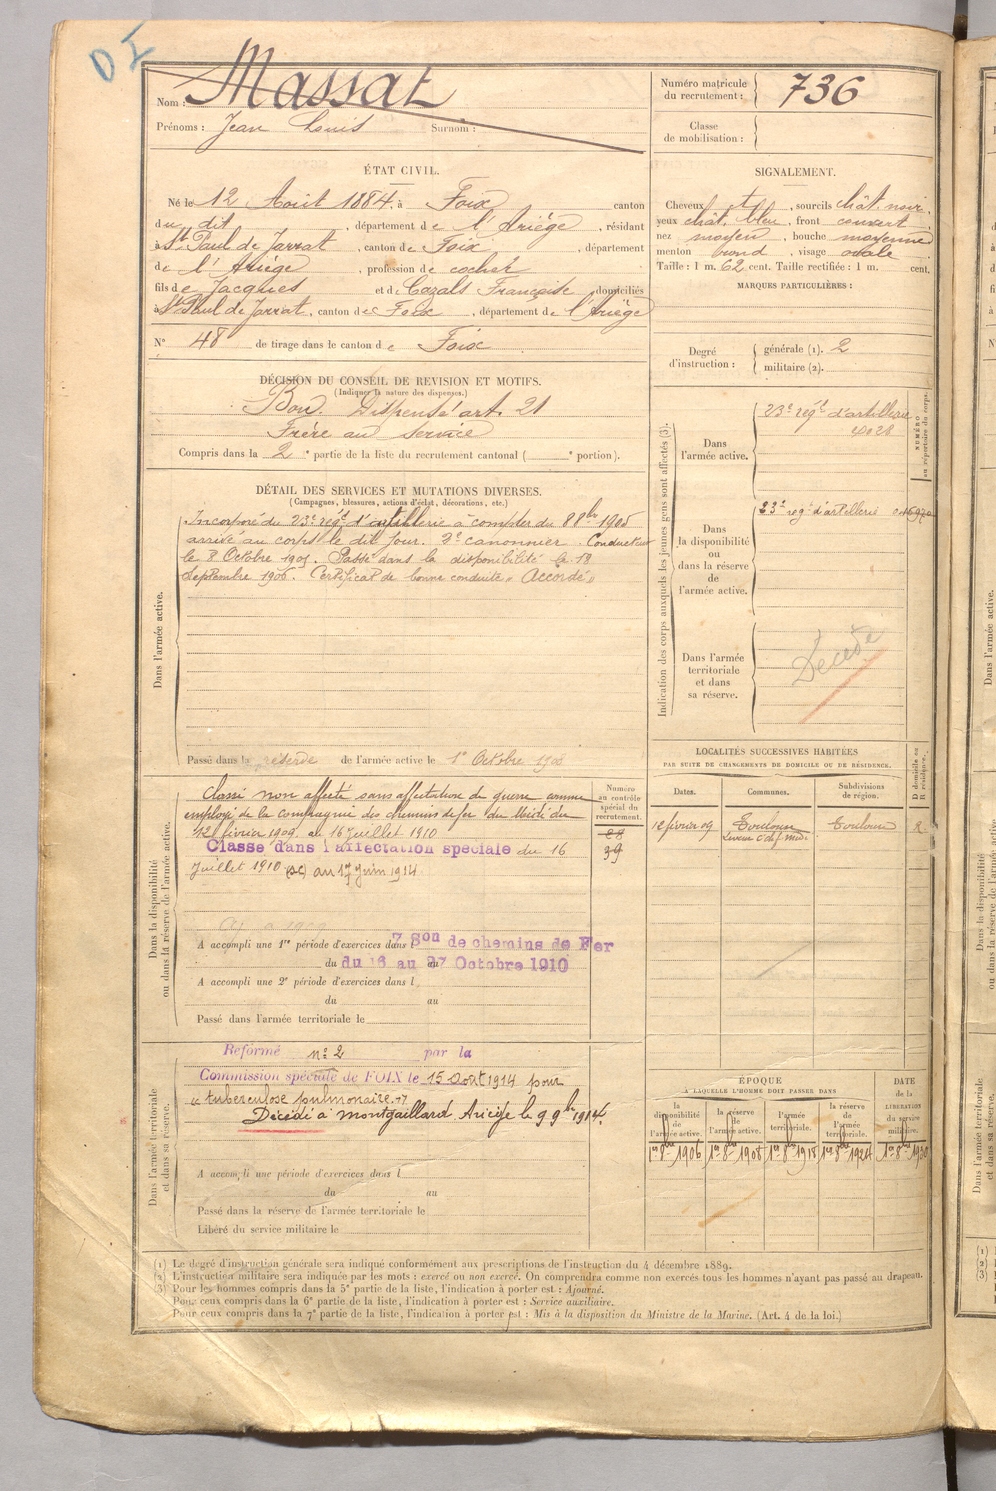 DI
Nom : Massat
Prénoms : Jean Louis Surnom :
Numéro matricule
du recrutement : 736
Classe
de mobilisation :
ÉTAT CIVIL.
Né le 12 Août 1884, à Foix canton
du dit, département de l'Ariège, résidant
à St Paul de Jarrat, canton de Foix, département
de l'Ariège, profession de cocher
fils de Jacques et de Cazals Françoise domiciliés
à St Paul de Jarrat, canton de Foix, département de l'Ariège
N° 48 de tirage dans le canton de Foix
SIGNALEMENT.
Cheveux et, sourcils chât. noir,
yeux chât. bleu, front couvert
nez moyen, bouche moyenne
menton rond, visage ovale
Taille : 1 m. 62 cent. Taille rectifiée : 1 m. cent.
MARQUES PARTICULIÈRES :
Degré
d'instruction :
générale (1). 2
militaire (2).
DÉCISION DU CONSEIL DE REVISION ET MOTIFS.
(Indiquer la nature des dispenses.)
Bon. Dispensé art. 21
Frère au service
Compris dans la 2e partie de la liste du recrutement cantonal ( e portion).
DÉTAIL DES SERVICES ET MUTATIONS DIVERSES.
(Campagnes, blessures, actions d'éclat, décorations, etc.)
Dans l'armée active.
Incorporé du 23e régt d'artillerie à compter du 8 8bre 1905
arrivé au corps le dit jour. 2e canonnier Conducteur
le 8 Octobre 1905. Passé dans la disponibilité le 18
Septembre 1906. Certificat de bonne conduite « Accordé »
Passé dans la réserve de l'armée active le 1er Octobre 1908
Indication des corps auxquels les jeunes gens sont affectés (3).
NUMÉRO
au répertoire du corps.
Dans
l'armée active.
23e régt d'artillerie
4028
Dans
la disponibilité
ou
dans la réserve
de
l'armée active.
23e régt d'artillerie
Dans l'armée
territoriale
et dans
sa réserve.
Décédé
Dans la disponibilité
ou dans la réserve de l'armée active.
Classé non affecté sans affectation de guerre comme
employé de la compagnie des chemins de fer du Midi du
12 février 1909 au 16 juillet 1910
Classé dans l'affectation spéciale du 16
Juillet 1910 au 17 Juin 1914
Numéro
au contrôle
spécial du
recrutement.
28
39
A accompli une 1re période d'exercices dans l 7 Son de chemins de Fer
du 16 au 27 Octobre 1910
A accompli une 2e période d'exercices dans l
du au
Passé dans l'armée territoriale le
LOCALITÉS SUCCESSIVES HABITÉES
PAR SUITE DE CHANGEMENTS DE DOMICILE OU DE RÉSIDENCE.
Dates. Communes. Subdivisions
de région. D domicile ou
R résidence.
12 février 09 Toulouse Toulouse R
Dans l'armée territoriale
et dans sa réserve.
Réformé n° 2 par la
Commission spéciale de FOIX le 15 Août 1914 pour
« tuberculose pulmonaire »
Décédé à Montgaillard Ariège le 9 9bre 1914.
A accompli une période d'exercices dans l
du au
Passé dans la réserve de l'armée territoriale le
Libéré du service militaire le
ÉPOQUE
A LAQUELLE L'HOMME DOIT PASSER DANS
DATE
DE LA
LIBÉRATION
du service
militaire.
la
disponibilité
de
l'armée active.
la réserve
de
l'armée active.
l'armée
territoriale.
la réserve
de l'armée
territoriale.
1er 8bre 1906 1er 8bre 1908 1er 8bre 1918 1er 8bre 1924 1er 8bre 1930
(1) Le degré d'instruction générale sera indiqué conformément aux prescriptions de l'instruction du 4 décembre 1889.
(2) L'instruction militaire sera indiquée par les mots : exercé ou non exercé. On comprendra comme non exercés tous les hommes n'ayant pas passé au drapeau.
(3) Pour les hommes compris dans la 5e partie de la liste, l'indication à porter est : Ajourné.
Pour ceux compris dans la 6e partie de la liste, l'indication à porter est : Service auxiliaire.
Pour ceux compris dans la 7e partie de la liste, l'indication à porter est : Mis à la disposition du Ministre de la Marine. (Art. 4 de la loi.)